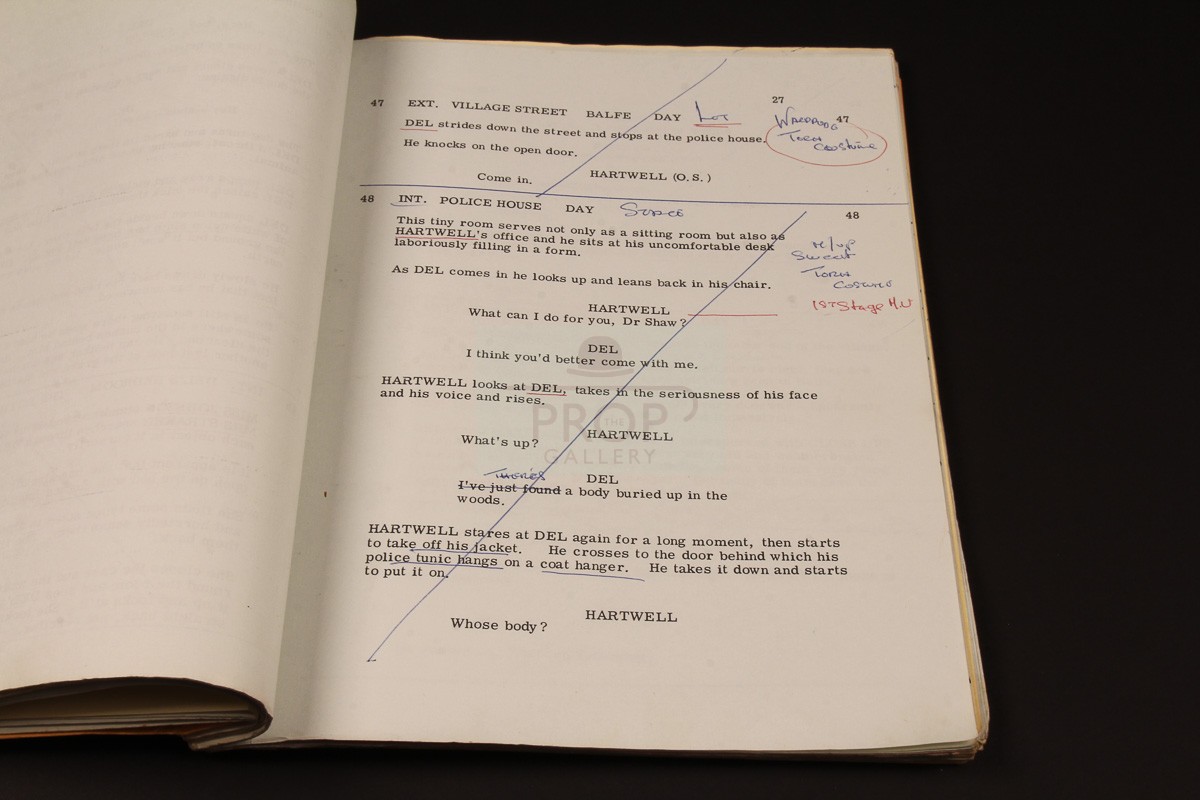 27
47 EXT. VILLAGE STREET BALFE DAY Lot 47
DEL strides down the street and stops at the police house.
He knocks on the open door.
WARDROBE
TORN
COSTUME
HARTWELL (O.S.)
Come in.
48 INT. POLICE HOUSE DAY STAGE 48
This tiny room serves not only as a sitting room but also as
HARTWELL's office and he sits at his uncomfortable desk
laboriously filling in a form.
M/up
Sweat
TORN
COSTUME
1ST Stage M.U
As DEL comes in he looks up and leans back in his chair.
HARTWELL
What can I do for you, Dr Shaw?
DEL
I think you'd better come with me.
HARTWELL looks at DEL, takes in the seriousness of his face
and his voice and rises.
HARTWELL
What's up?
DEL
THERE'S
I've just found a body buried up in the
woods.
HARTWELL stares at DEL again for a long moment, then starts
to take off his jacket. He crosses to the door behind which his
police tunic hangs on a coat hanger. He takes it down and starts
to put it on.
HARTWELL
Whose body?
THE
PROP
GALLERY